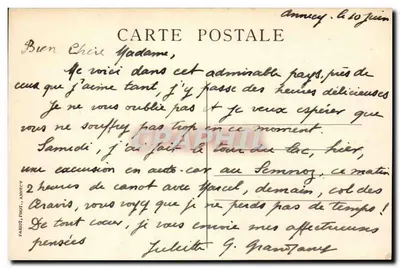 Annecy, le 10 juin
CARTE POSTALE
Bien Chère Madame,
Me voici dans cet admirable pays, près de
ceux que j'aime tant, j'y passe des heures délicieuses
Je ne vous oublie pas et je veux espérer que
vous ne souffrez pas trop en ce moment.
Samedi, j'ai fait le tour du lac, hier,
une excursion en auto-car au Semnoz, ce matin
2 heures de canot avec Marcel, demain, col des
Aravis, vous voyez que je ne perds pas de temps!
De tout coeur, je vous envoie mes affectueuses
pensées
Juliette G.
PHOT., ANNECY